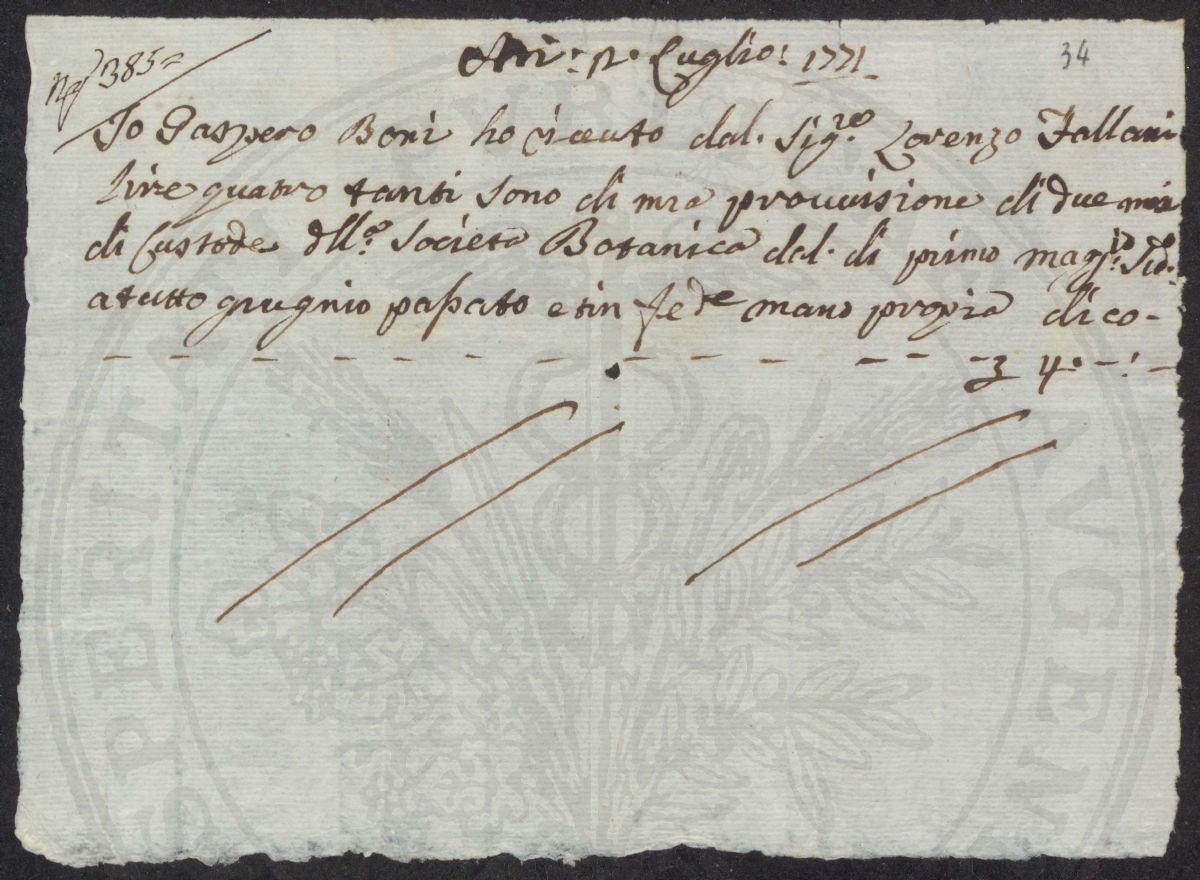 385
34
Luglio: 1771
Io Gaspero Boni ho riceuto dal. Sig.re Lorenzo Fallani
lire quatro tanti sono di mia provvisione di due mesi
di Custode dll.a Società Botanica dal. di primo magio
a tutto giugnio passato e tin fede mano propia dico-
4